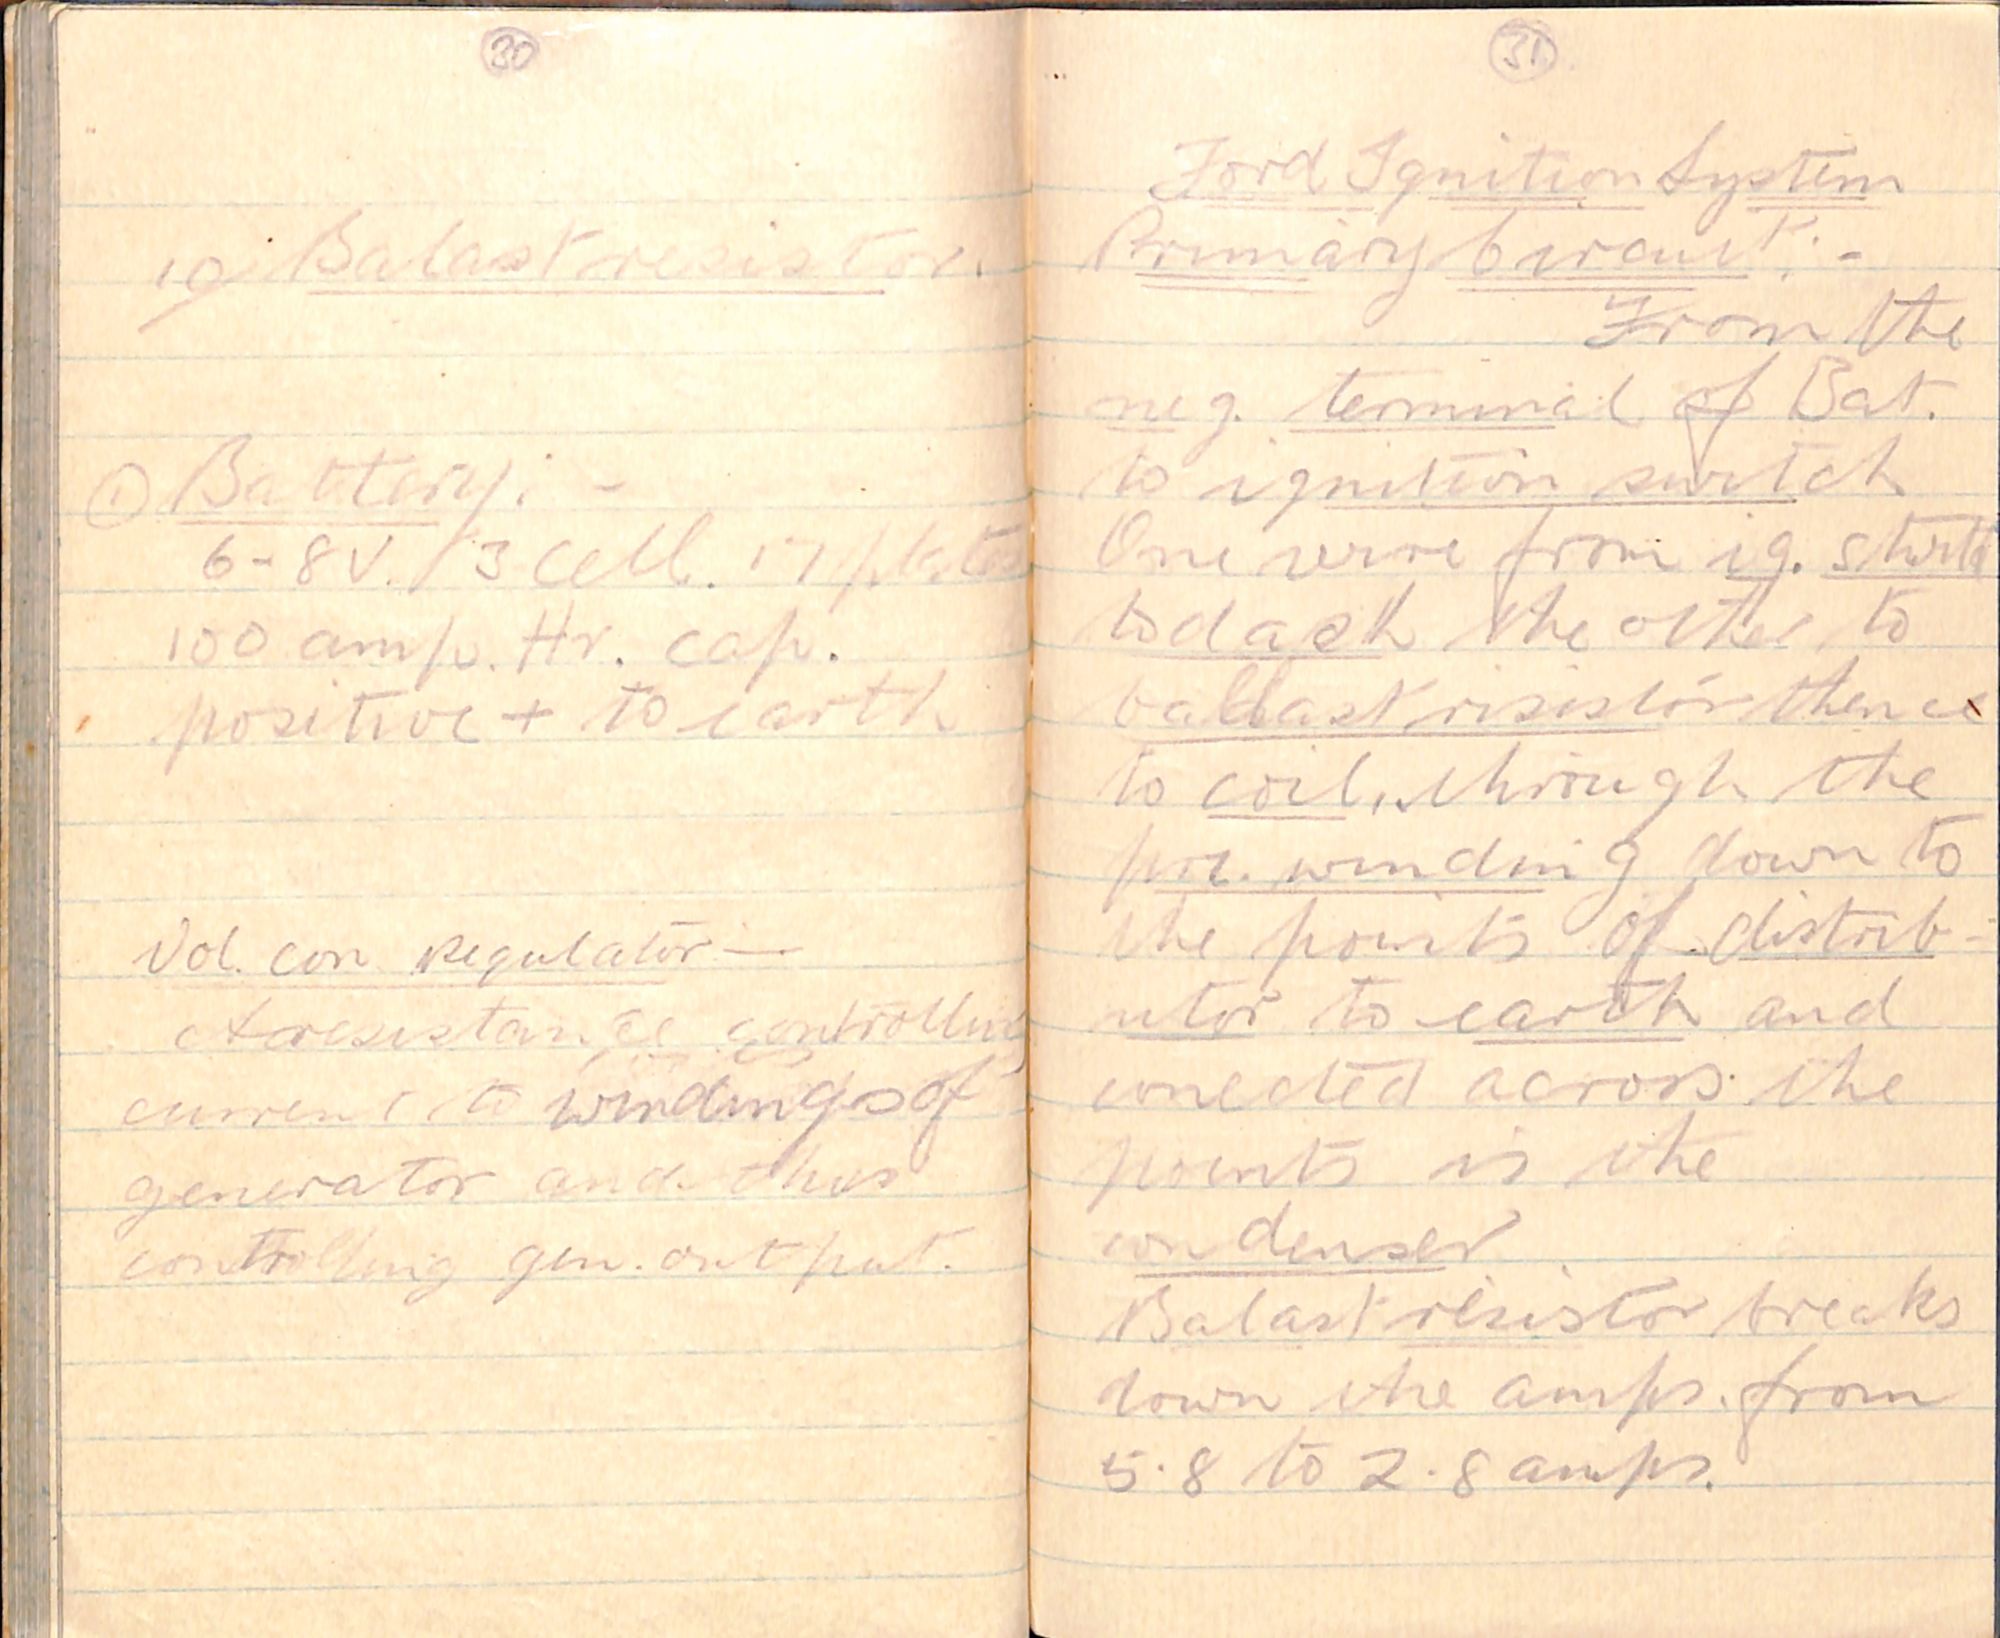 30
10/ Balast resistor.
① Battery: -
6-8V. 3 cell. 17 plates
100 amp. Hr. cap.
positive + to earth
Vol. con Regulator —
A resistance controlling
current to windings of
generator and thus
controlling gen. output.
31.
Ford Ignition System
Primary Circuit: -
From the
neg. terminal of Bat.
to ignition switch
One wire from ig.
to dash the other to
ballast risistor thence
to coil, through the
pri. winding down to
the points of distrib-
utor to earth and
conected across the
points is the
condenser
Balast resistor breaks
down the amps. from
5.8 to 2.8 amps.